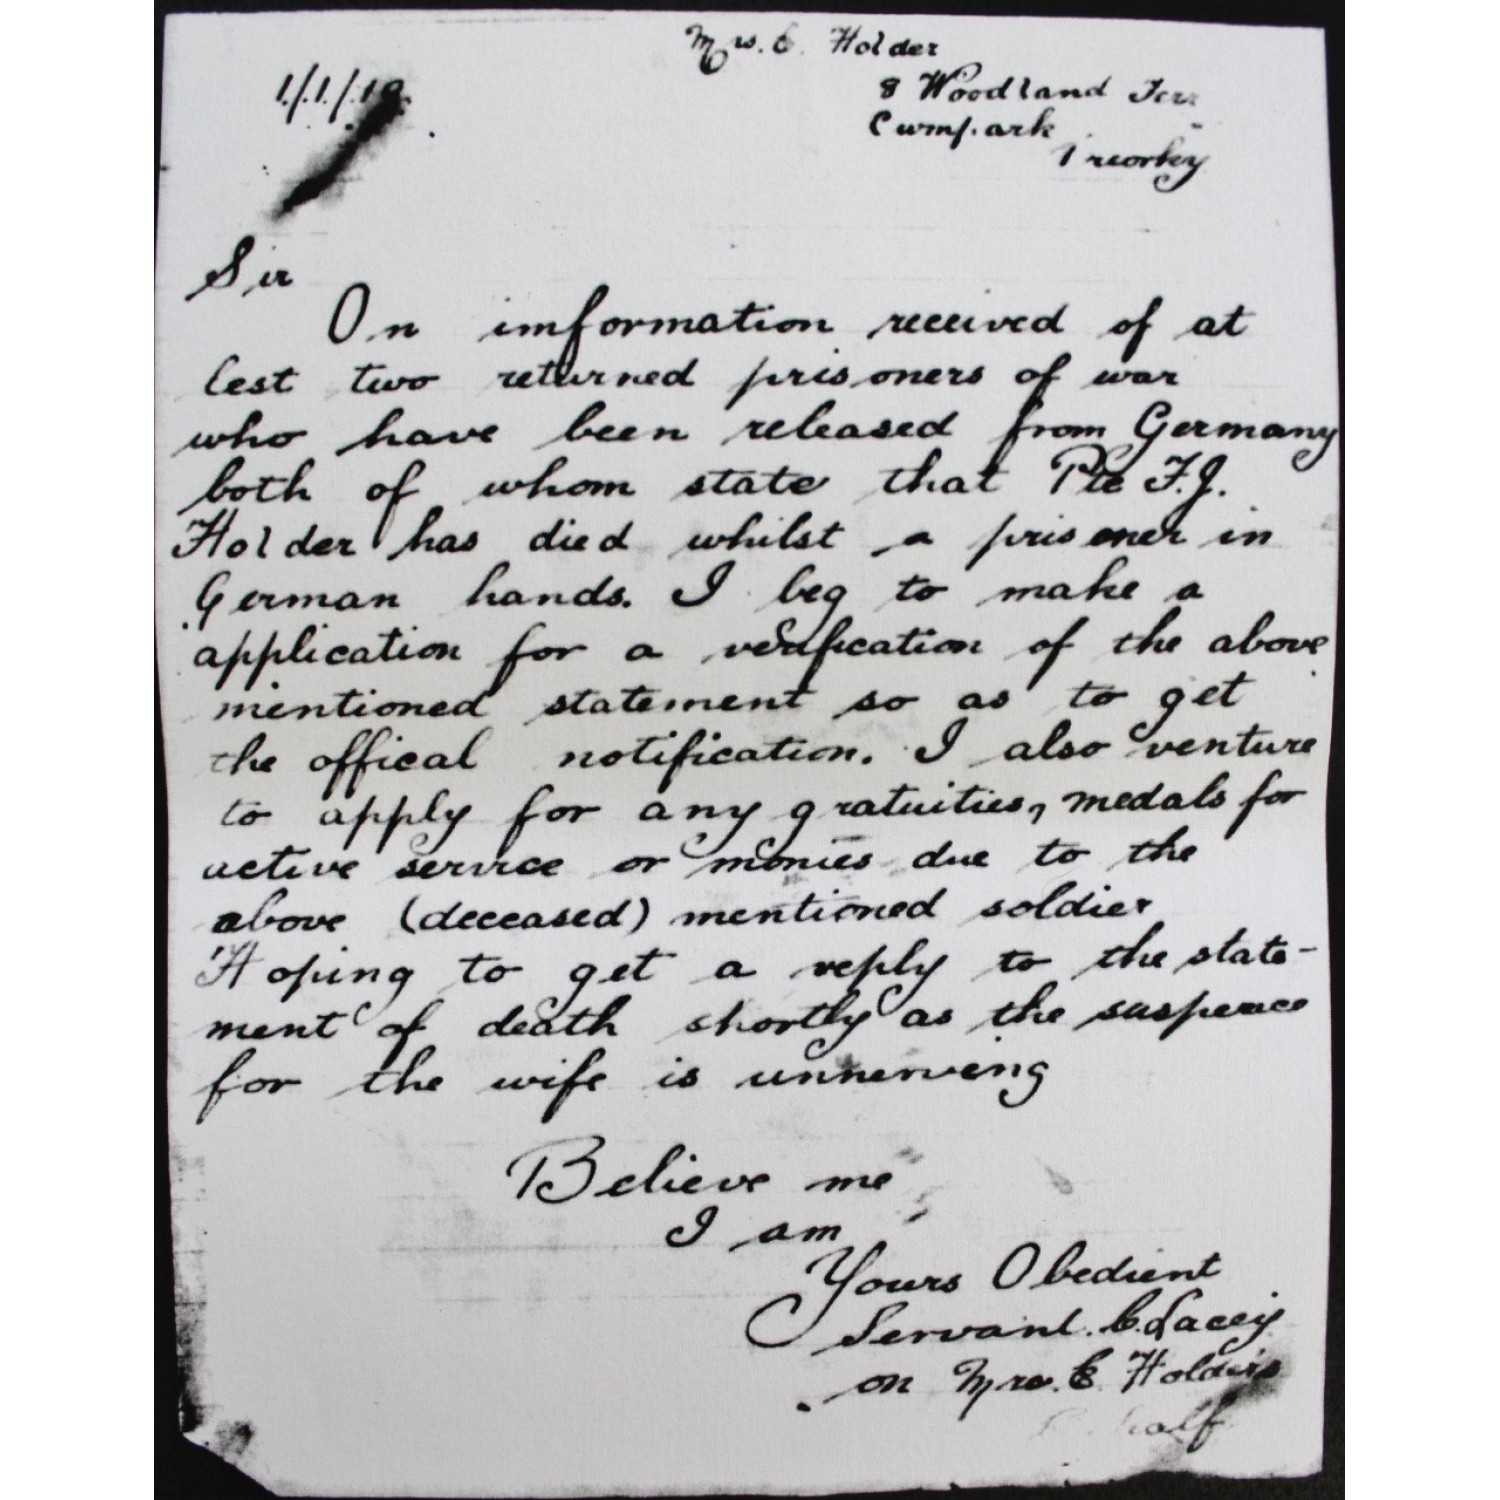 Mrs. E. Holder
8 Woodland Terr
Cwmpark
Treorky
1/1/19.
Sir
On imformation received of at
lest two returned prisoners of war
who have been released from Germany
both of whom state that Pte F.J.
Holder has died whilst a prisoner in
German hands. I beg to make a
application for a verification of the above
mentioned statement so as to get
the offical notification. I also venture
to apply for any gratuities, medals for
active service or monies due to the
above (deceased) mentioned soldier
Hoping to get a reply to the state-
ment of death shortly as the suspence
for the wife is unnerving
Believe me
I am
Yours Obedient
Servant. C. Lacey
on Mrs. E. Holders
half